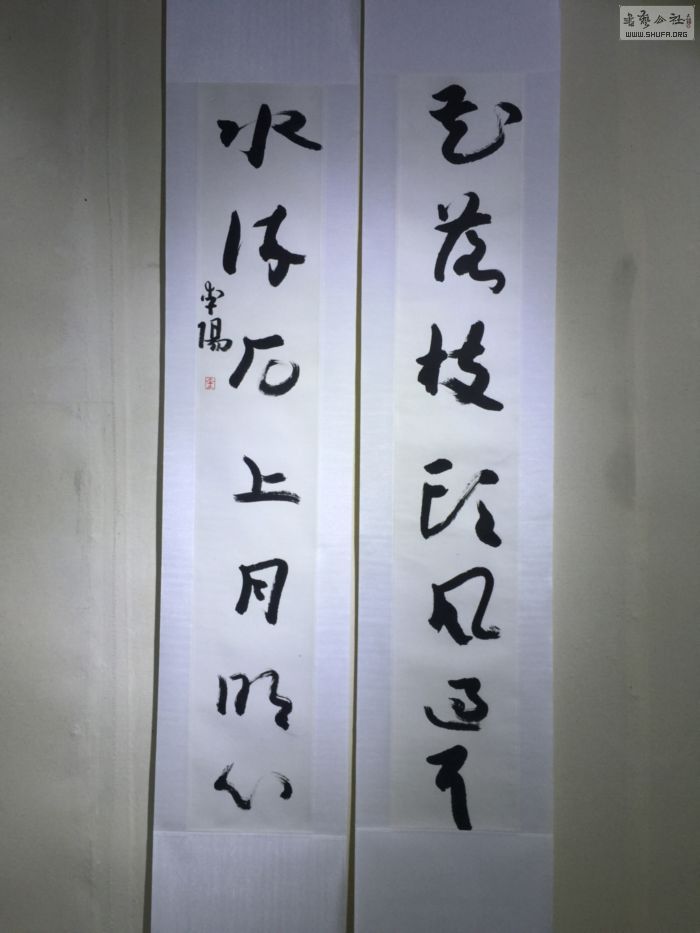 花落枝头风过耳
水流石上月明心
李阳
书艺公社
WWW.SHUFA.ORG